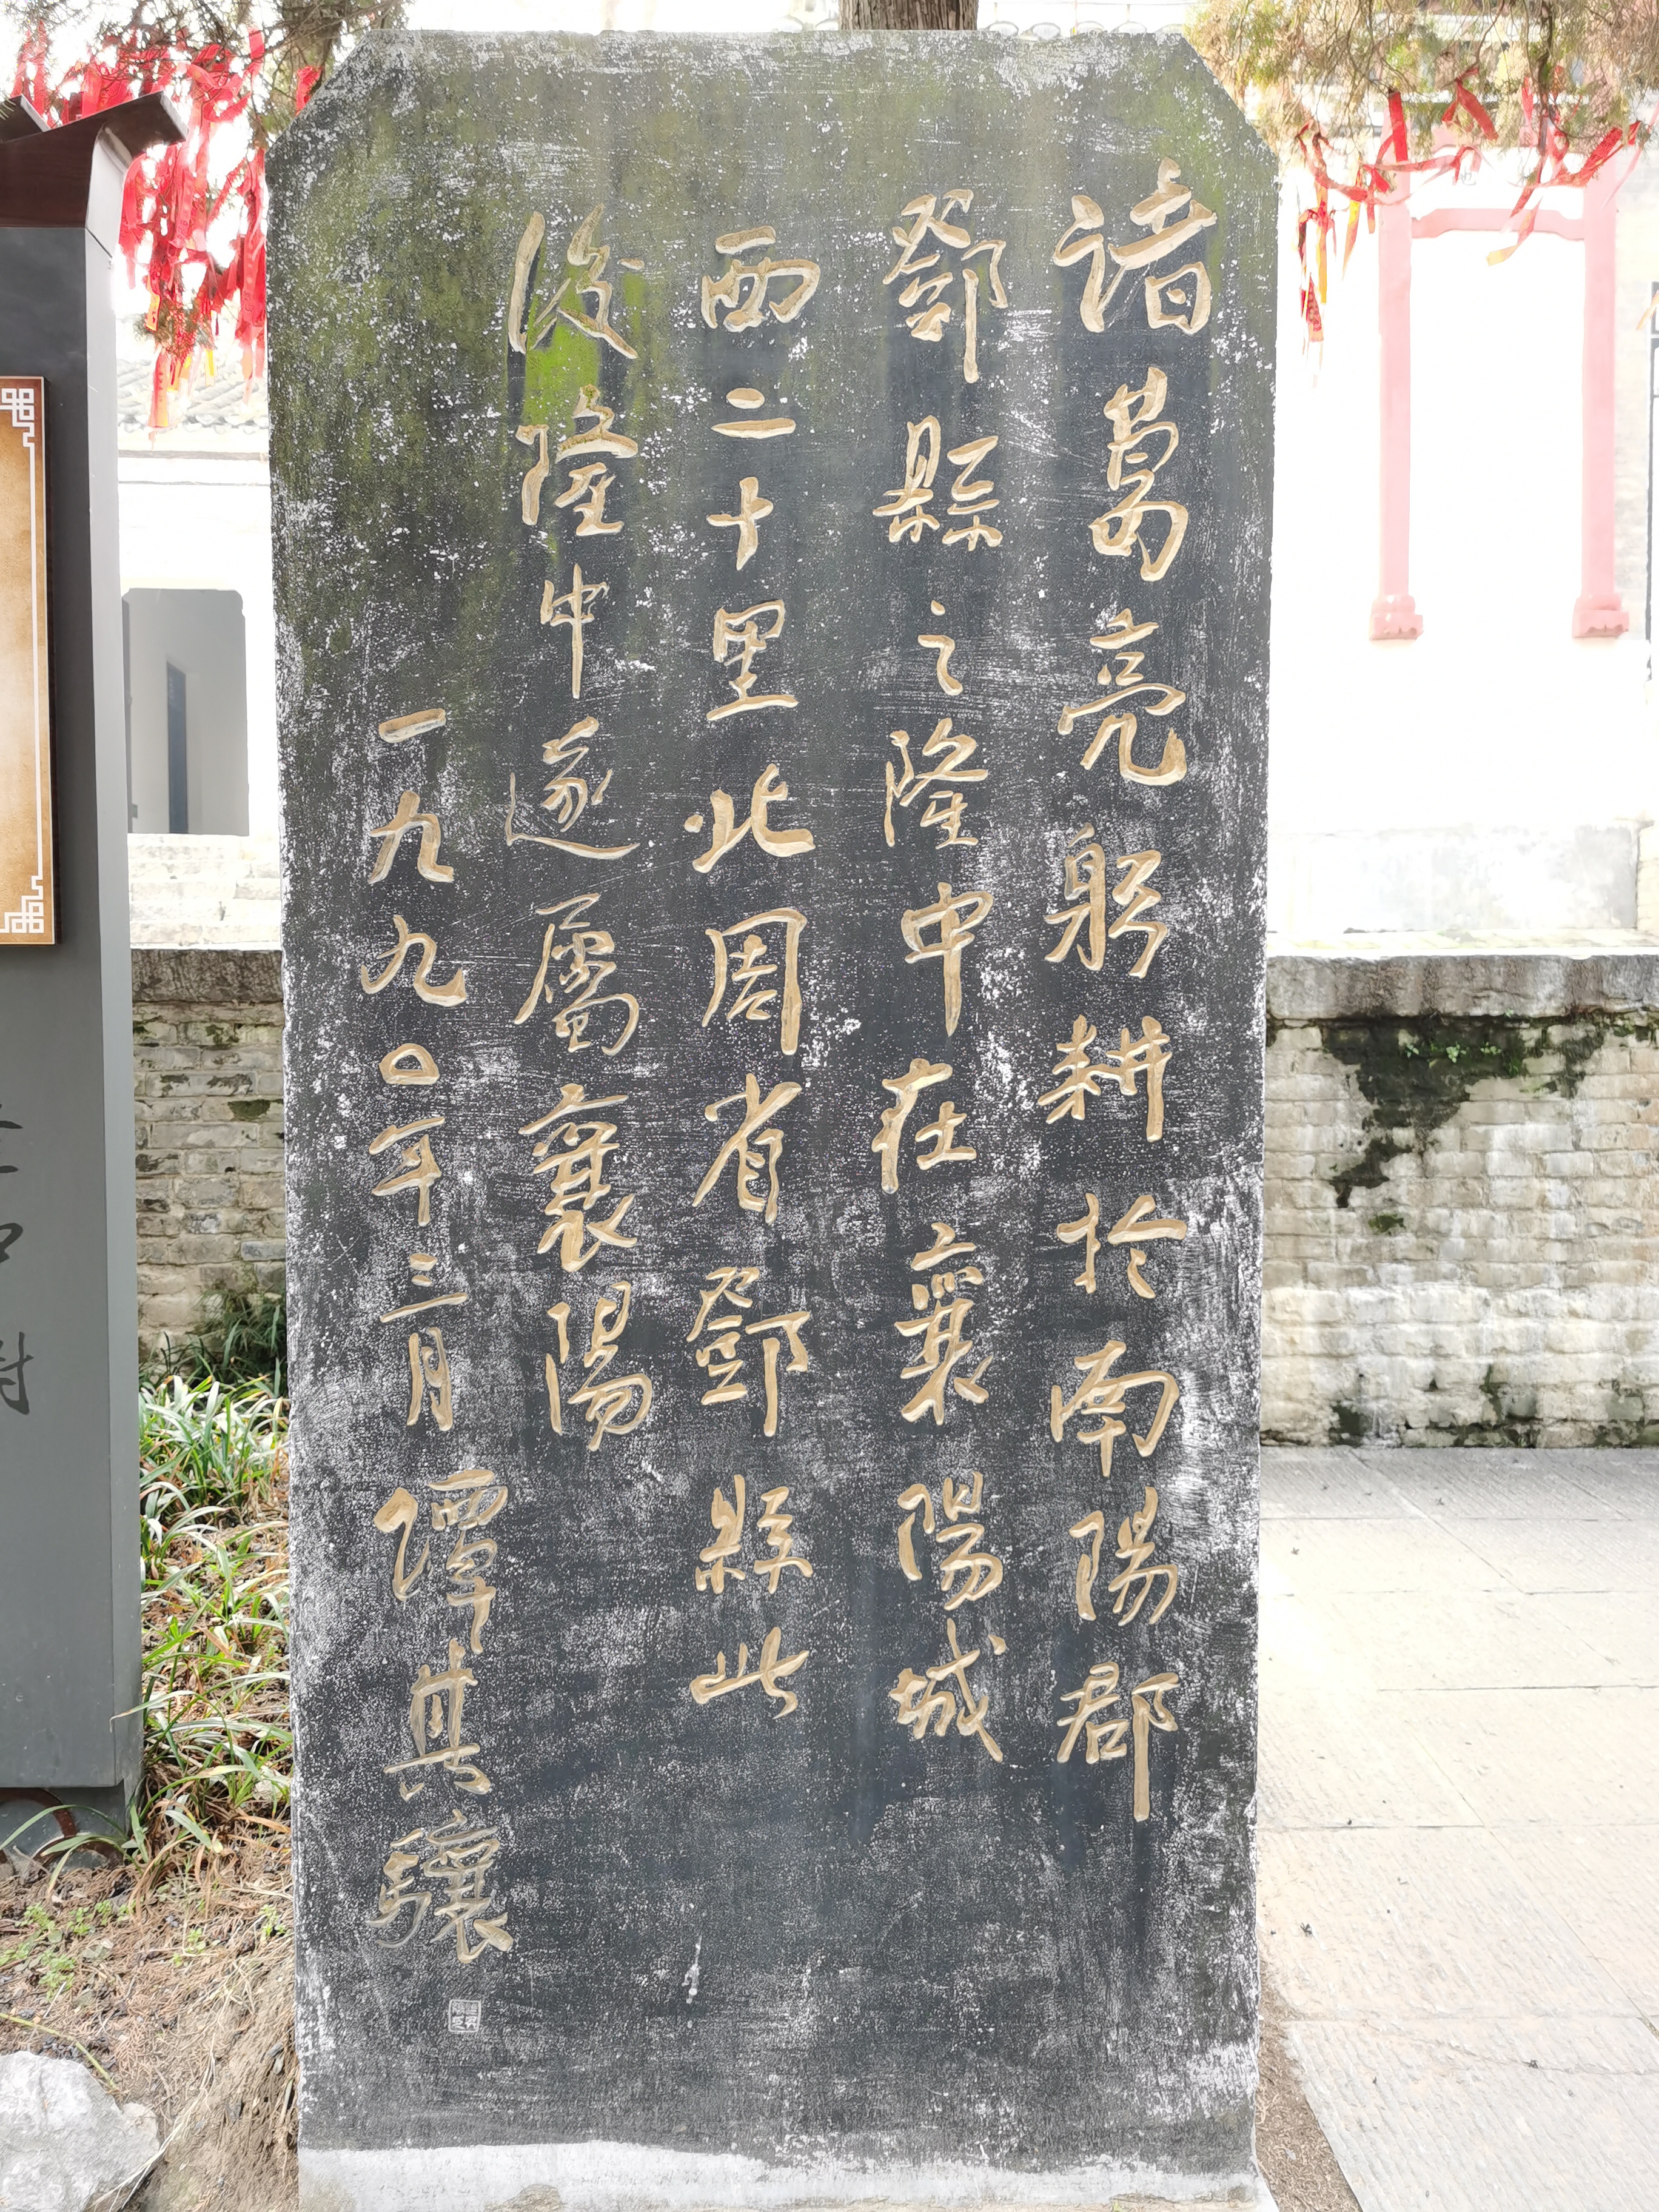 诸葛亮躬耕於南陽郡
鄧縣之隆中在襄陽城
西二十里北周省鄧縣此
後隆中遂屬襄陽
一九九〇年三月 譚其驤